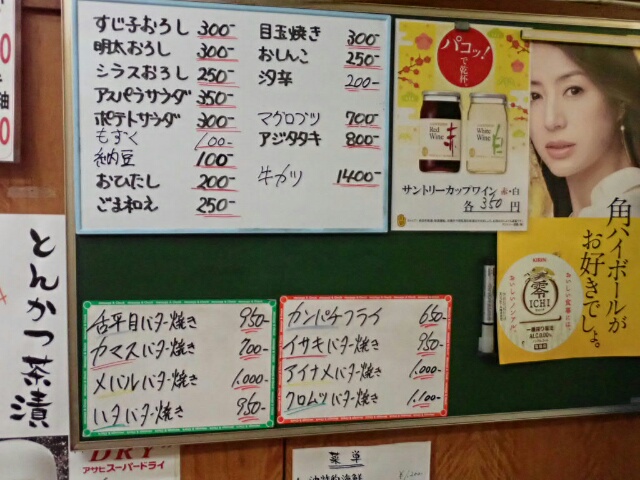 すじ子おろし 300-
明太おろし 300-
シラスおろし 250-
アスパラサラダ 350-
ポテトサラダ 300-
もずく 100-
納豆 100-
おひたし 200-
ごま和え 250-
目玉焼き 300-
おしんこ 250-
汐辛 200-
マグロブツ 700-
アジタタキ 800-
牛カツ 1400-
パコッ!
で乾杯。
Red Wine 赤
White Wine 白
サントリーカップワイン 赤・白
各 350 円
角ハイボールが
お好きでしょ。
KIRIN
零
ICHI
おいしいノンアル、
おいしい笑顔には。
一番搾り製法
ALC.0.00%
舌平目バター焼き 950-
カマスバター焼き 700-
メバルバター焼き 1.000-
ハタバター焼き 950-
カンパチフライ 650-
イサキバター焼き 950-
アイナメバター焼き 1.000-
クロムツバター焼き 1.100-
とんかつ茶漬
DRY
アサヒスーパードライ
菜単